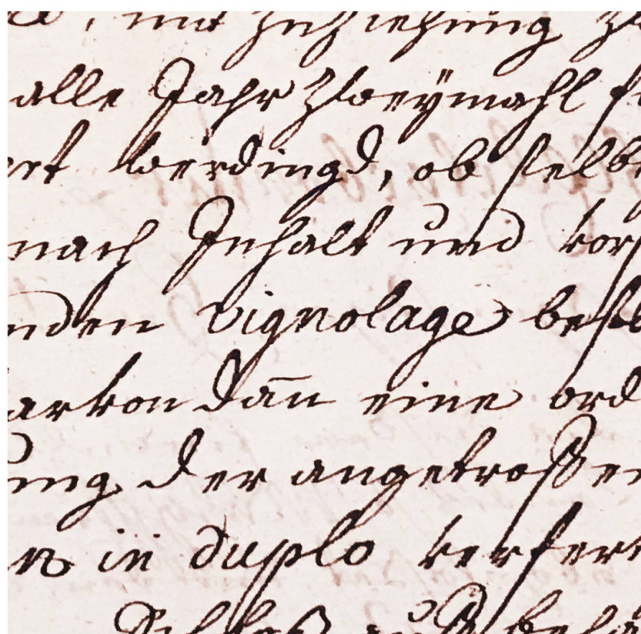 , mit Zuziehung
alle Jahr Zweÿmahl
werdingd, ob selb
nach Inhalt und vor
nden vignolage best
arvon dan̄ eine ord
ung der angetroffen
in duplo verfert
Schloß